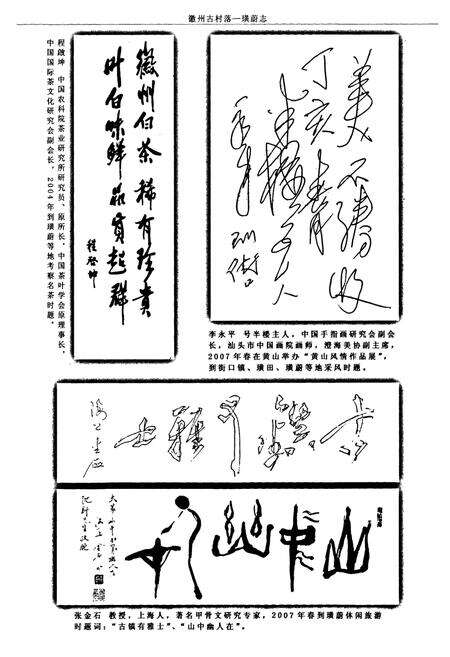 徽州古村落—璜蔚志
程啟坤 中国农科院茶业研究所研究员、原所长，中国茶叶学会原理事长，
中国国际茶文化研究会副会长，2004年到璜蔚等地考察名茶时题。
徽州白茶稀有珍貴
叶白味鲜品質超群
程啓坤
美不勝收
丁亥春
李永平 号半楼主人，中国手指画研究会副会
长，汕头市中国画院画师，澄海美协副主席，
2007年春在黄山举办“黄山风情作品展”，
到街口镇、璜田、璜蔚等地采风时题。
山中幽人在
张金石 教授，上海人，著名甲骨文研究专家，2007年春到璜蔚休闲旅游
时题词：“古镇有雅士”、“山中幽人在”。